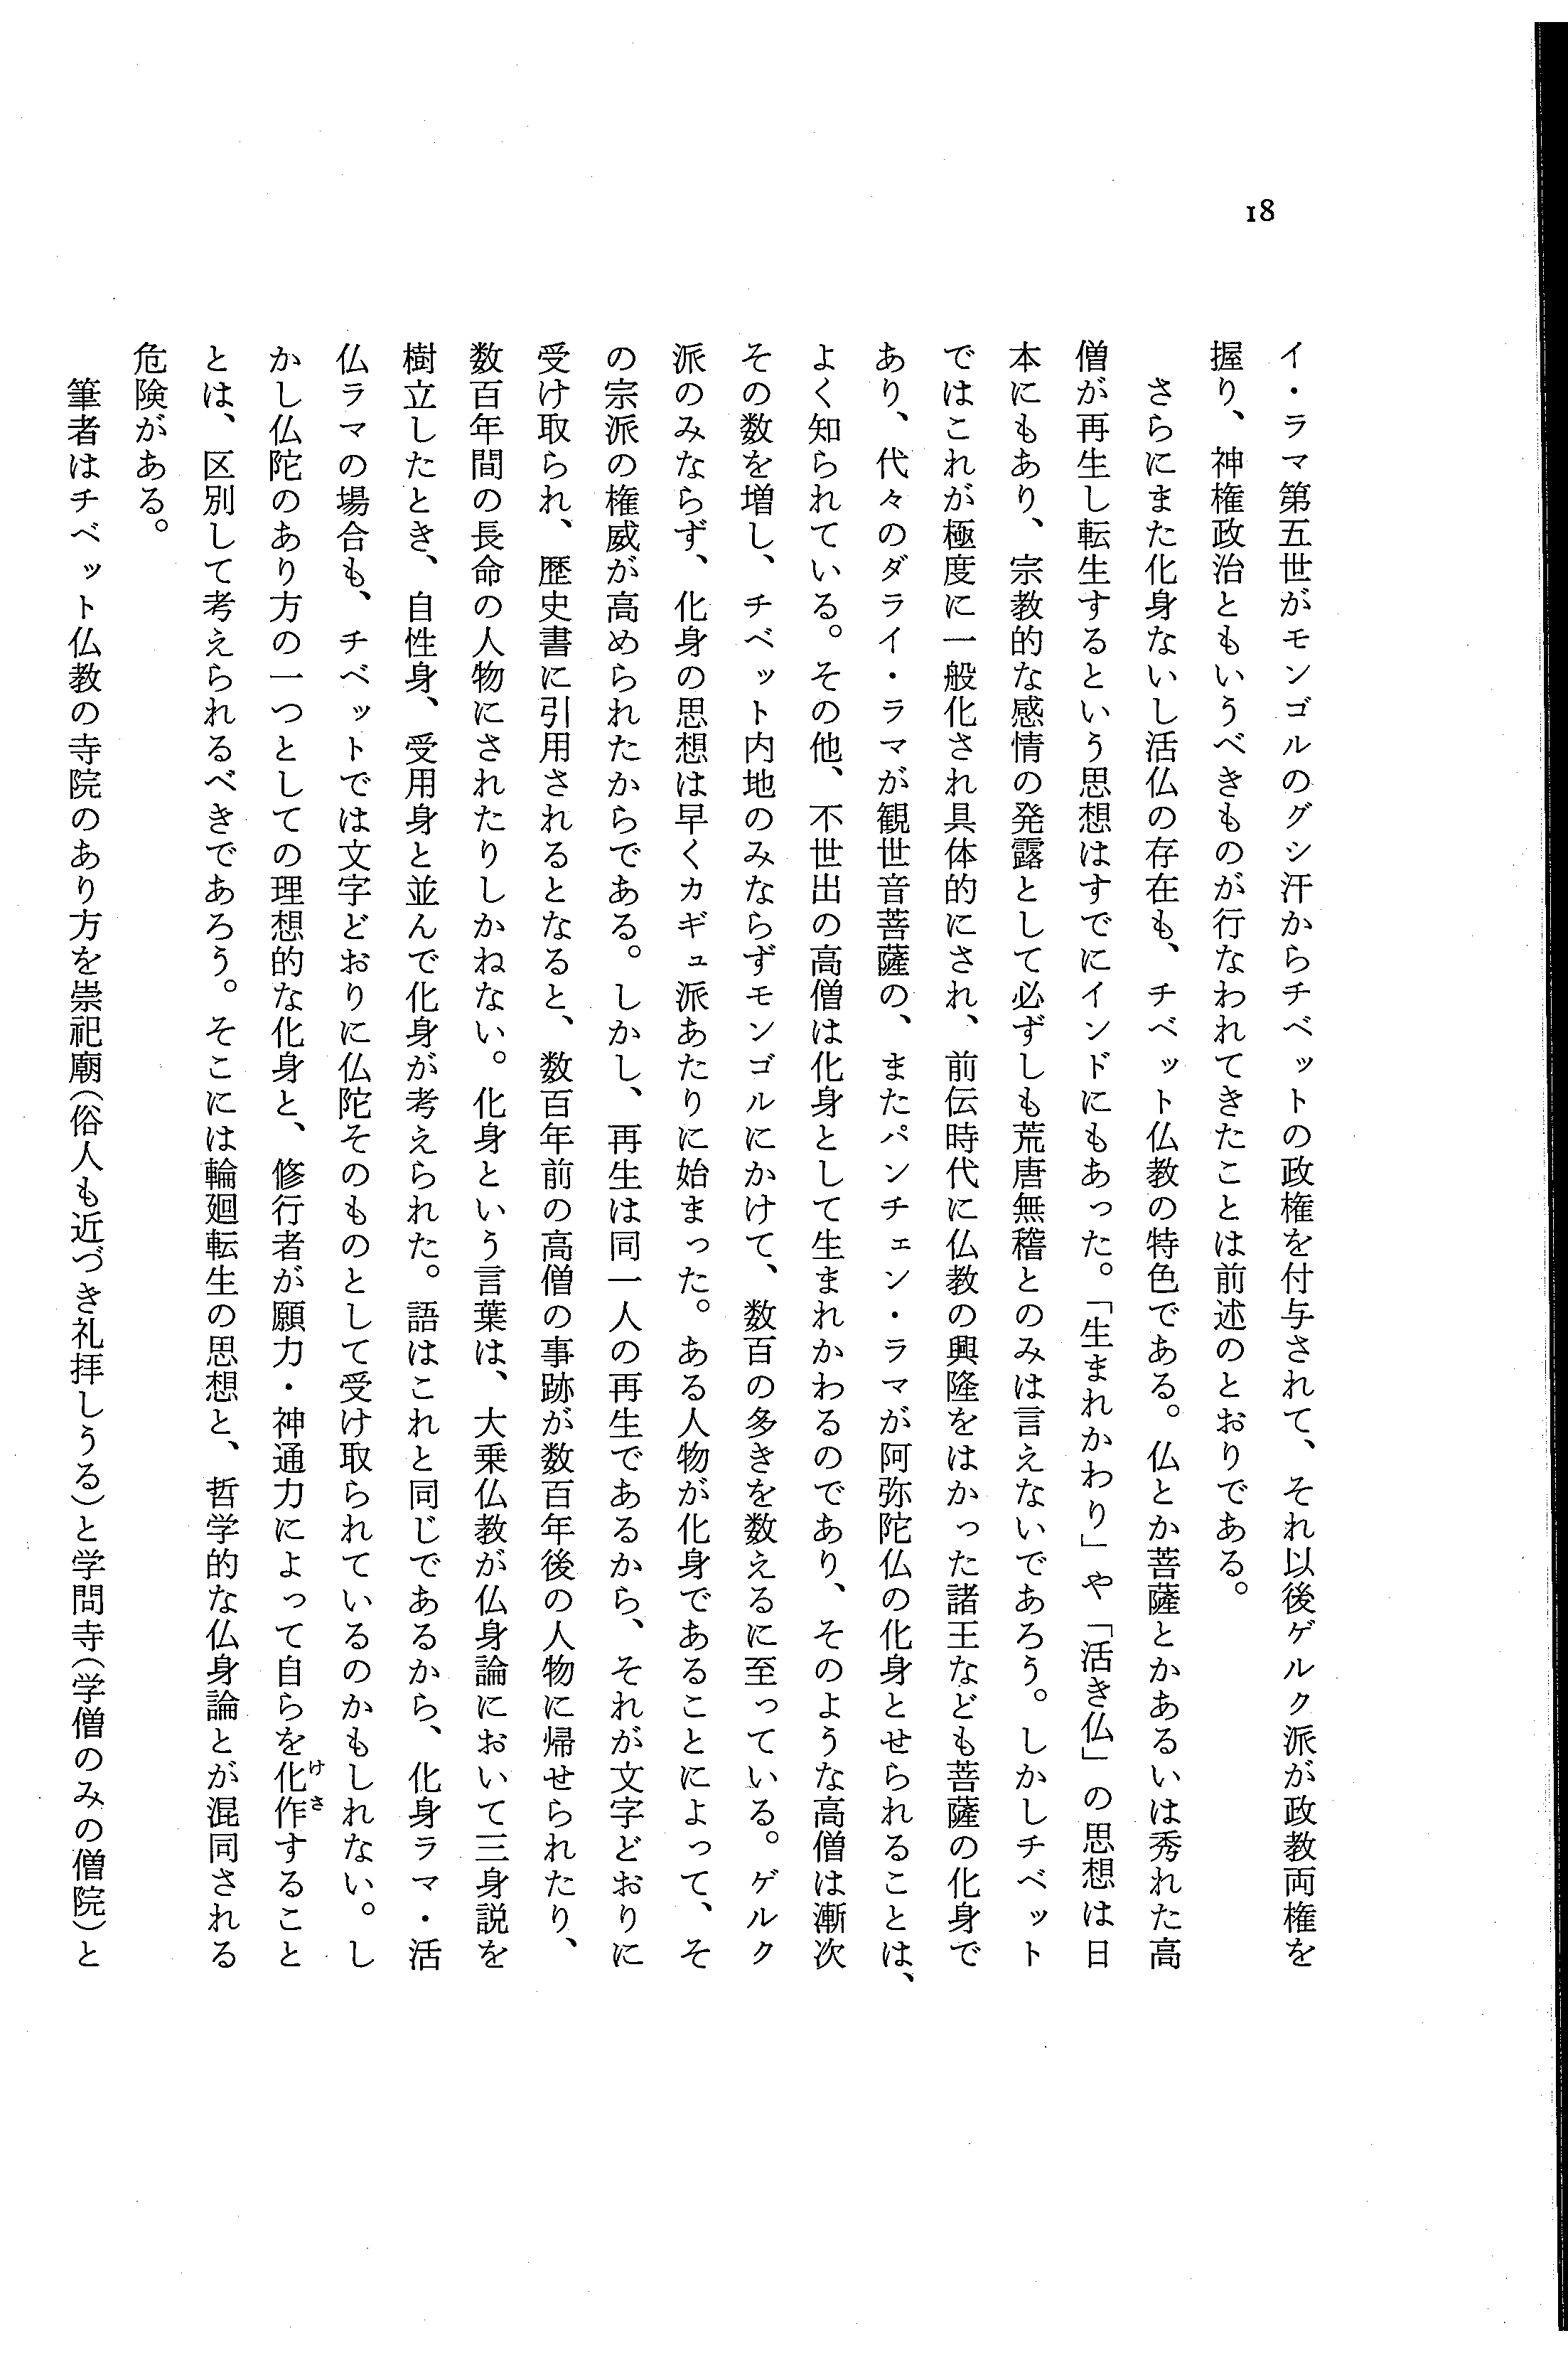 18
イ・ラマ第五世がモンゴルのグシ汗からチベットの政権を付与されて、それ以後ゲルク派が政教両権を
握り、神権政治ともいうべきものが行なわれてきたことは前述のとおりである。
さらにまた化身ないし活仏の存在も、チベット仏教の特色である。仏とか菩薩とかあるいは秀れた高
僧が再生し転生するという思想はすでにインドにもあった。「生まれかわり」や「活き仏」の思想は日
本にもあり、宗教的な感情の発露として必ずしも荒唐無稽とのみは言えないであろう。しかしチベット
ではこれが極度に一般化され具体的にされ、前伝時代に仏教の興隆をはかった諸王なども菩薩の化身で
あり、代々のダライ・ラマが観世音菩薩の、またパンチェン・ラマが阿弥陀仏の化身とせられることは、
よく知られている。その他、不世出の高僧は化身として生まれかわるのであり、そのような高僧は漸次
その数を増し、チベット内地のみならずモンゴルにかけて、数百の多きを数えるに至っている。ゲルク
派のみならず、化身の思想は早くカギュ派あたりに始まった。ある人物が化身であることによって、そ
の宗派の権威が高められたからである。しかし、再生は同一人の再生であるから、それが文字どおりに
受け取られ、歴史書に引用されるとなると、数百年前の高僧の事跡が数百年後の人物に帰せられたり、
数百年間の長命の人物にされたりしかねない。化身という言葉は、大乗仏教が仏身論において三身説を
樹立したとき、自性身、受用身と並んで化身が考えられた。語はこれと同じであるから、化身ラマ・活
仏ラマの場合も、チベットでは文字どおりに仏陀そのものとして受け取られているのかもしれない。し
かし仏陀のあり方の一つとしての理想的な化身と、修行者が願力・神通力によって自らを化作けさすること
とは、区別して考えられるべきであろう。そこには輪廻転生の思想と、哲学的な仏身論とが混同される
危険がある。
筆者はチベット仏教の寺院のあり方を崇祀廟（俗人も近づき礼拝しうる）と学問寺（学僧のみの僧院）と